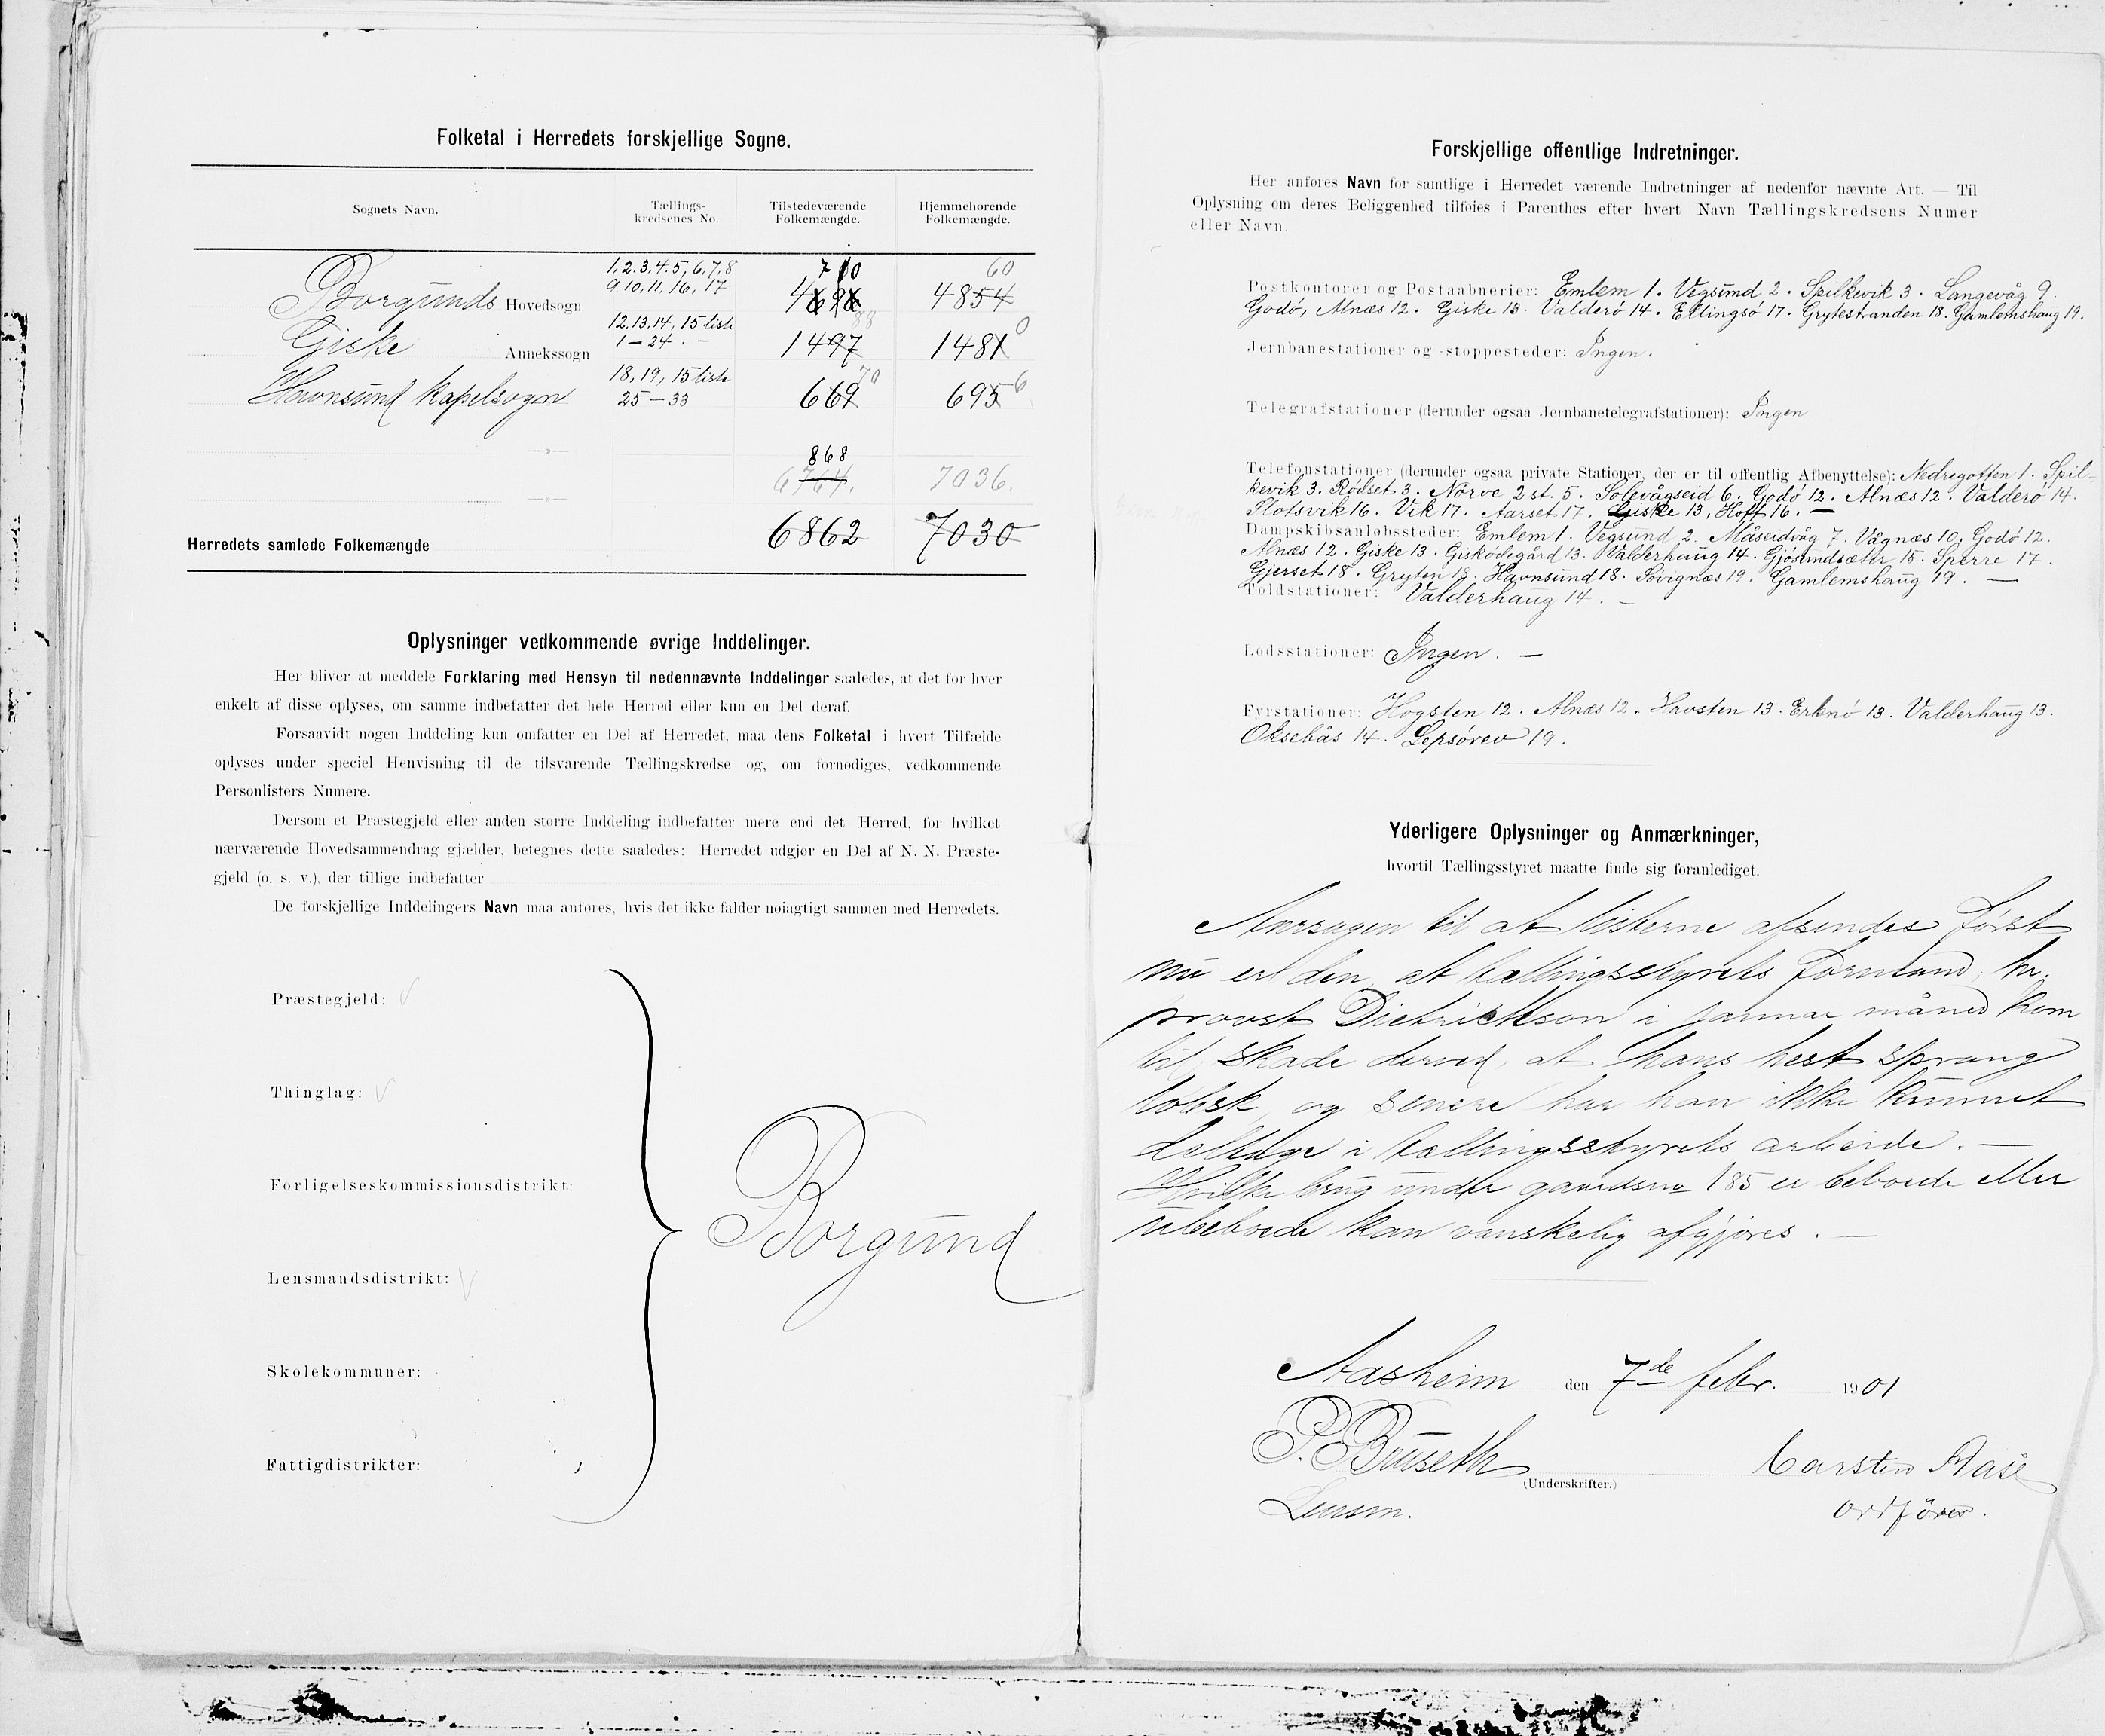 Folketal i Herredets forskjellige Sogne.
Sognets Navn.
Tællings-
kredsenes No.
Tilstedeværende
Folkemængde.
Hjemmehørende
Folkemængde.
1.2.3.4.5, 6.7.8
9.10.11.16.17
Borgunds Hovedsogn
710
60
4854
12.13.14, 15 liste
1-24
Giske Annekssogn
1497 88
1481 0
18, 19, 15 liste
25-33
Havnsund Kapelsogn
669 70
695 6
868
6764.
7036.
Herredets samlede Folkemængde 6862 7030
Oplysninger vedkommende øvrige Inddelinger.
Her bliver at meddele Forklaring med Hensyn til nedennævnte Inddelinger saaledes, at det for hver
enkelt af disse oplyses, om samme indbefatter det hele Herred eller kun en Del deraf.
Forsaavidt nogen Inddeling kun omfatter en Del af Herredet, maa dens Folketal i hvert Tilfælde
oplyses under speciel Henvisning til de tilsvarende Tællingskredse og, om fornødiges, vedkommende
Personlisters Numere.
Dersom et Præstegjeld eller anden større Inddeling indbefatter mere end det Herred, for hvilket
nærværende Hovedsammendrag gjælder, betegnes dette saaledes: Herredet udgjør en Del af N. N. Præste-
gjeld (o. s. v.), der tillige indbefatter
De forskjellige Inddelingers Navn maa anføres, hvis det ikke falder nøiagtigt sammen med Herredets.
Præstegjeld:
Thinglag:
Forligelseskommissionsdistrikt:
Borgund
Lensmandsdistrikt:
Skolekommuner:
Fattigdistrikter:
Forskjellige offentlige Indretninger.
Her anføres Navn for samtlige i Herredet værende Indretninger af nedenfor nævnte Art. — Til
Oplysning om deres Beliggenhed tilføies i Parenthes efter hvert Navn Tællingskredsens Numer
eller Navn.
Postkontorer og Postaabnerier: Emlem 1. Vegsund 2. Spilkevik 3. Langevåg 9.
Godö, Alnæs 12. Giske 13. Valderö 14. Ellingsö 17. Grytestranden 18. Gamlemshaug 19.
Jernbanestationer og -stoppesteder: Ingen.
Telegrafstationer (derunder ogsaa Jernbanetelegrafstationer): Ingen
Telefonstationer (derunder ogsaa private Stationer, der er til offentlig Afbenyttelse): Nedregotten 1. Spil-
kevik 3. Rödset 3. Nörve 2 st. 5. Solevågseid 6. Godö 12. Alnæs 12. Valderö 14.
Slotsvik 16. Vik 17. Aarset 17. Giske 13, Hoff 16. —
Dampskibsanløbssteder: Emlem 1. Vegsund 2. Måseidvåg 7. Vegnæs 10. Godö 12.
Alnæs 12. Giske 13. Gisködegård 13. Valderhaug 14. Gjösundsæter 15. Sperre 17.
Gjerset 18. Gryten 18. Havnsund 18. Sövignæs 19. Gamlemshaug 19. —
Toldstationer: Valderhaug 14. —
Lodsstationer: Ingen. —
Fyrstationer: Hogsten 12. Alnæs 12. Havsten 13. Erknö 13. Valderhaug 13.
Oksebås 14. Lepsörev 19.
Yderligere Oplysninger og Anmærkninger,
hvortil Tællingsstyret maatte finde sig foranlediget.
Aarsagen til at listerne afsendes först
nu er den, at tællingsstyrets formand, hr.
provst Dietrichson i januar måned kom
til skade derved, at hans hest sprang
löbsk, og senere har han ikke kunnet
deltage i tællingsstyrets arbeide. —
Hvilke brug under gaardsno 185 er beboede eller
ubeboede kan vanskelig afgjöres. —
Aasheim den 7de febr. 1901
P. Bruseth Carsten Aase
(Underskrifter.)
Lensm. ordförer.